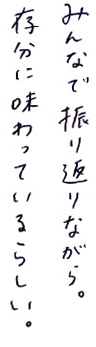 みんなで振り返りながら。
存分に味わっているらしい。